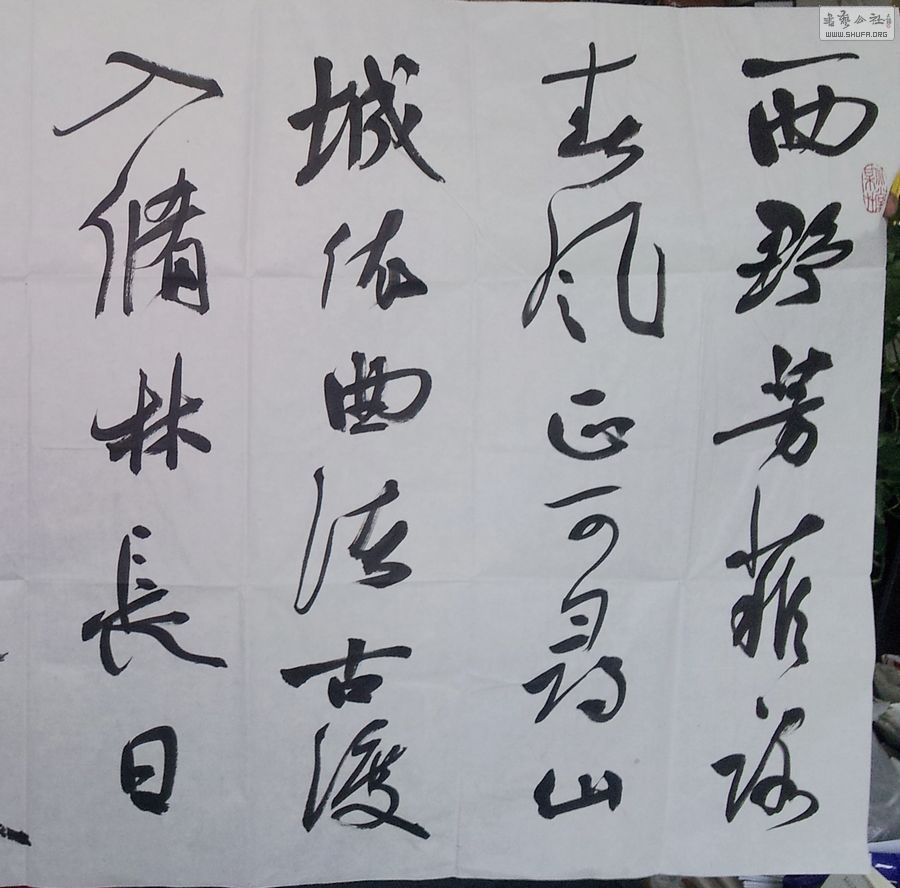 西野芳菲路
春風正可尋山
城依曲渚古渡
入脩林長日
書藝公社
WWW.SHUFA.ORG